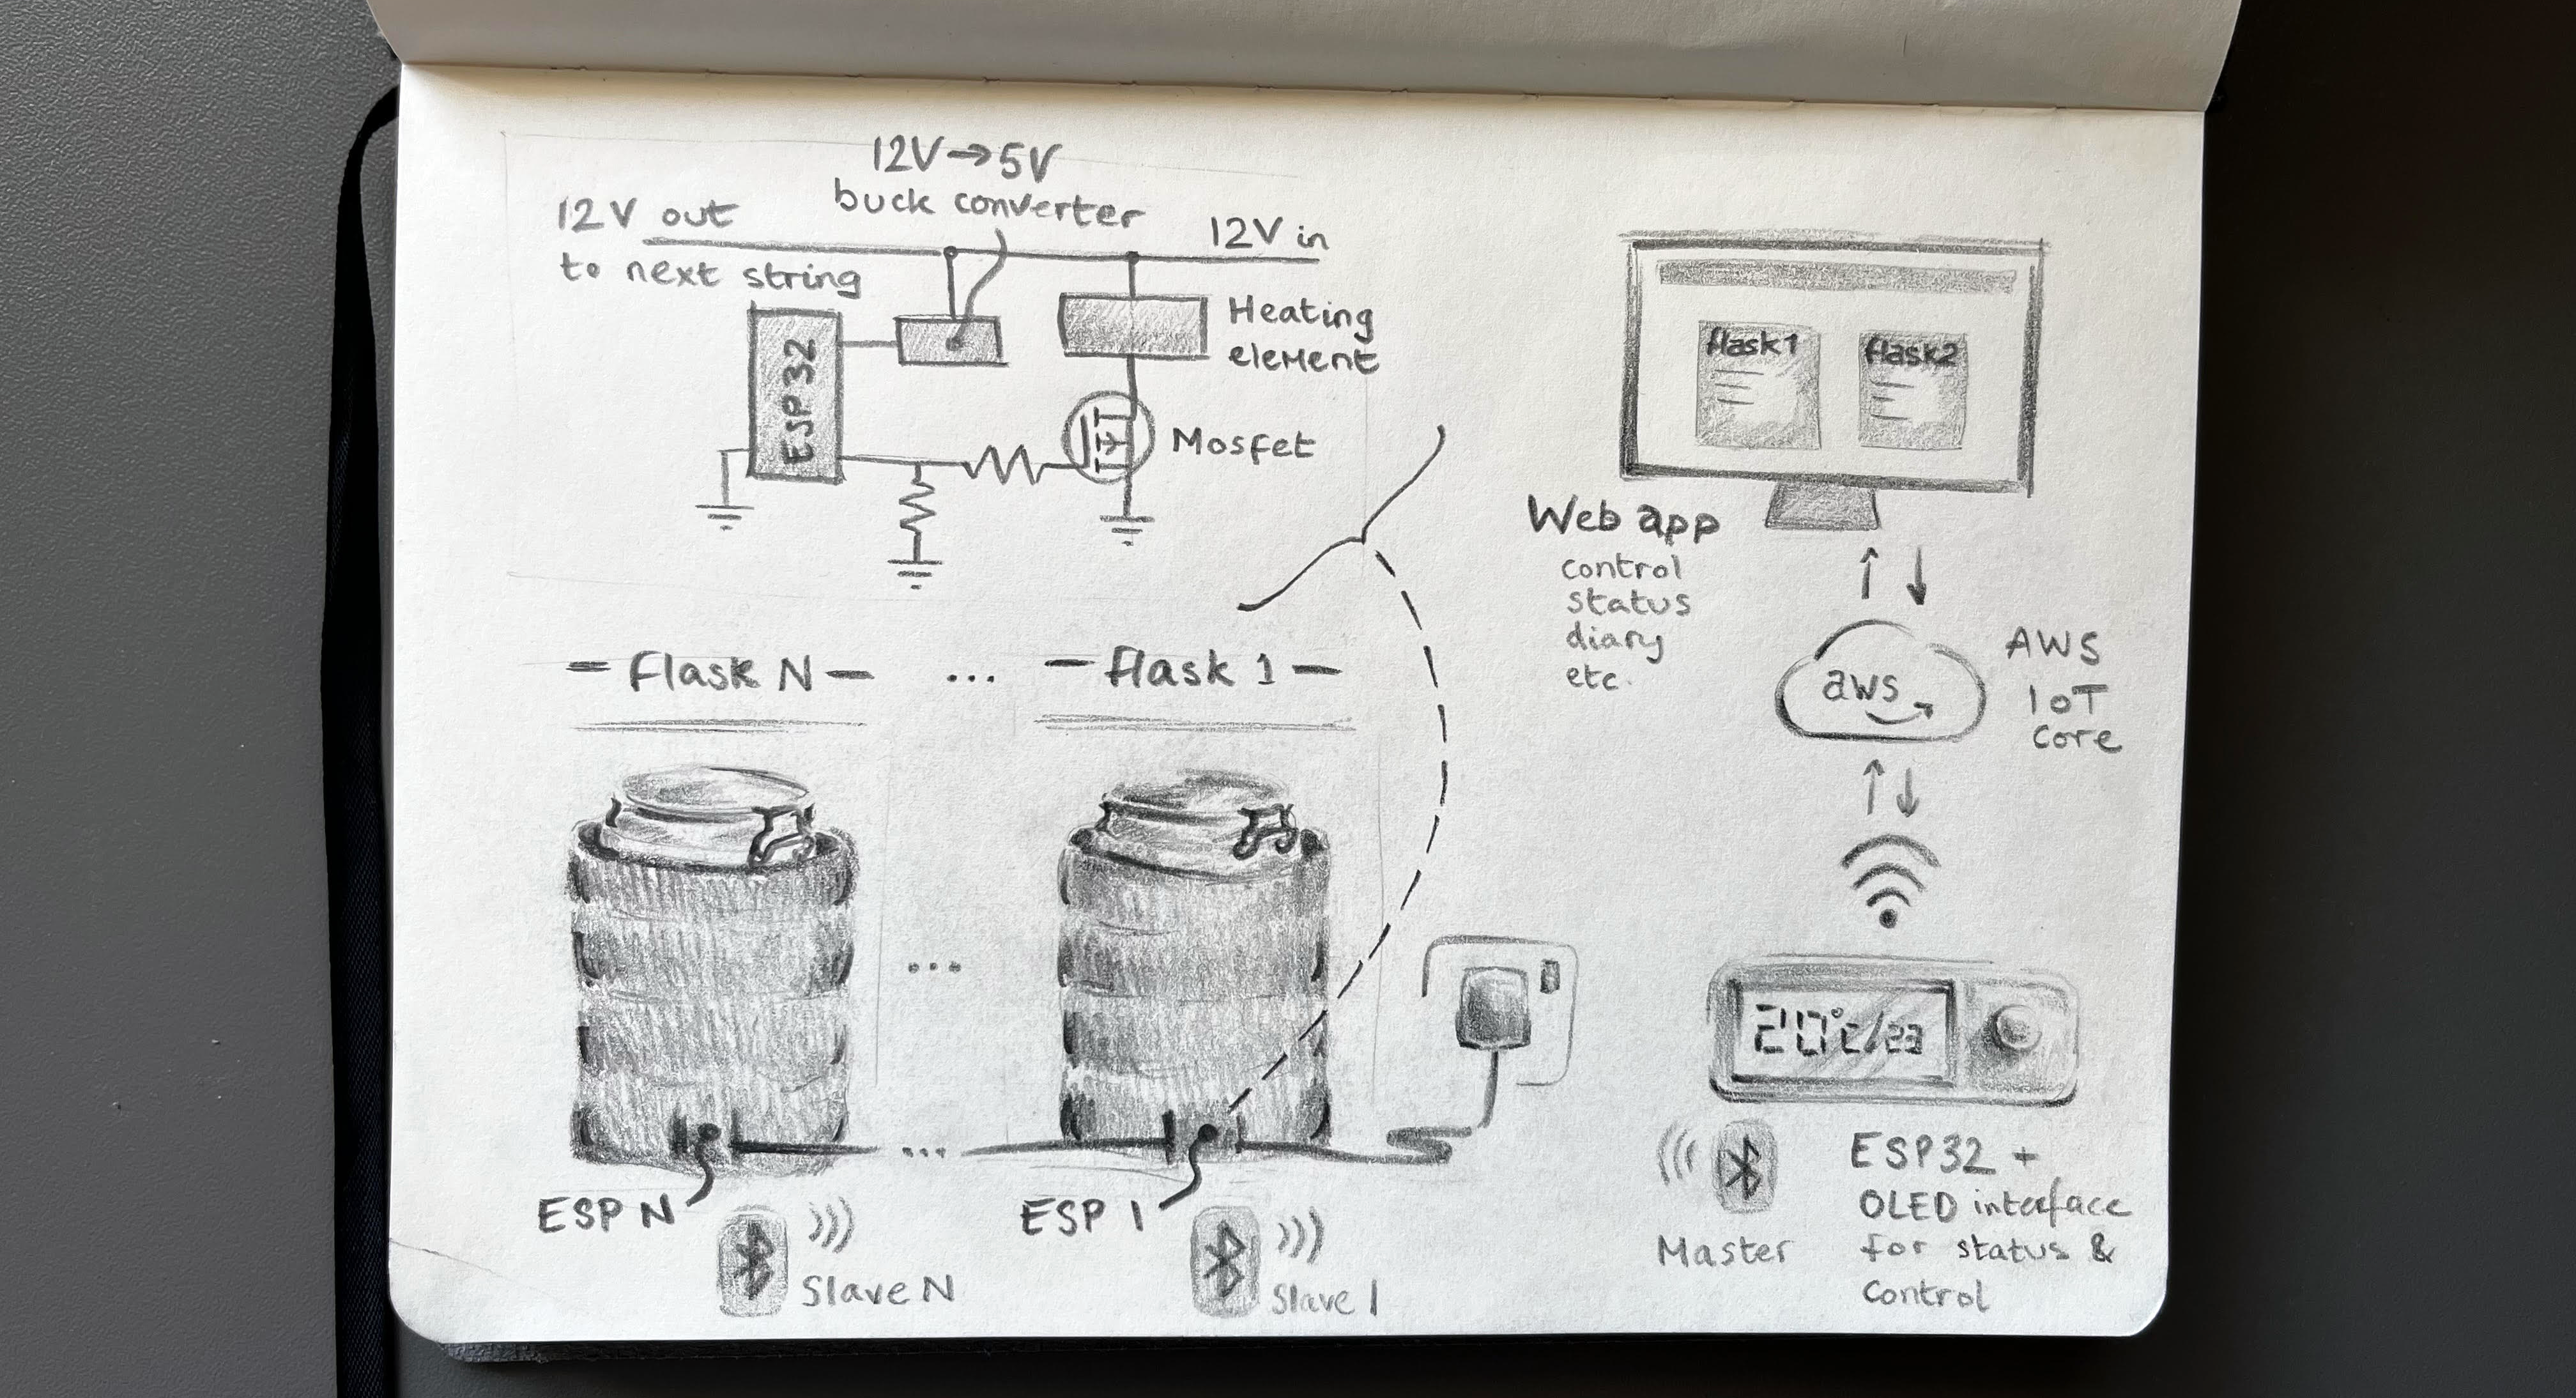 12V→5V
buck converter
12V out
to next string
12V in
ESP32
Heating
element
Mosfet
flask1
flask2
Web app
control
status
diary
etc.
aws
AWS
IoT
Core
- Flask N - ... - flask 1 -
20°C/
ESP N
Slave N
ESP 1
Slave 1
Master
ESP32 +
OLED interface
for status &
control